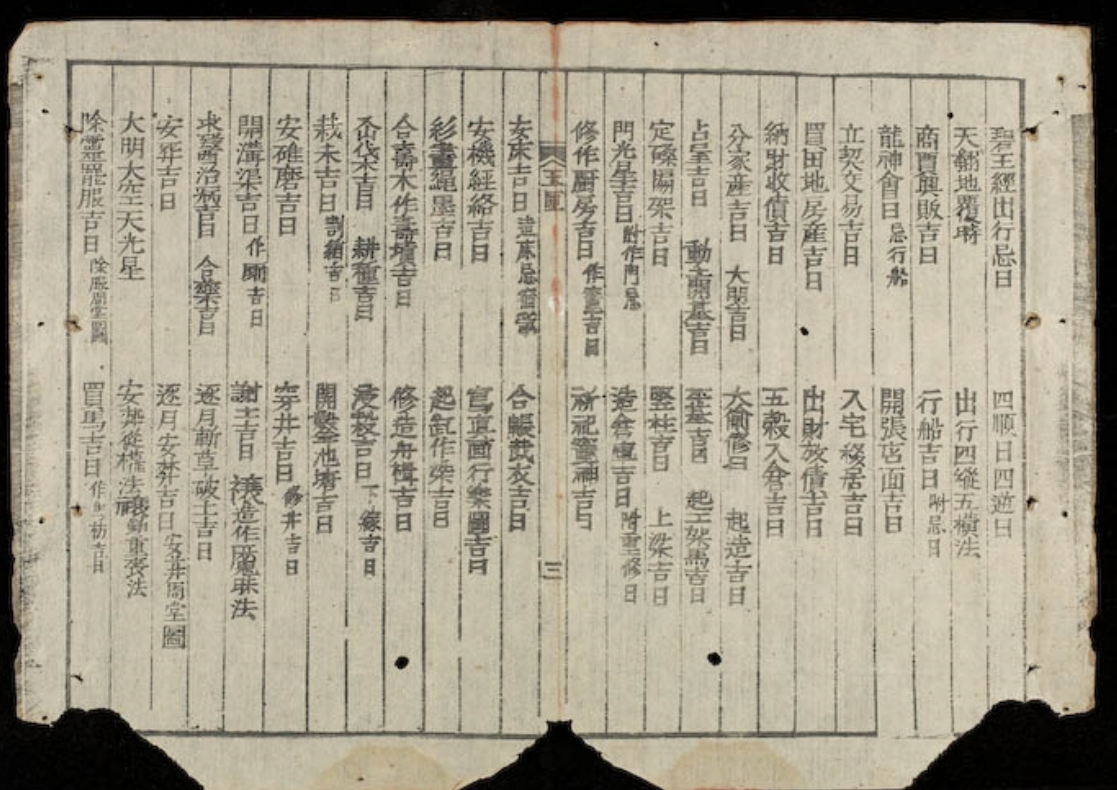 碧玉經出行忌日 四順日四遊日
天翻地覆時 出行四縱五橫法
商賈興販吉日 行船吉日 附忌日
龍神會日 忌行船 開張店面吉日
立契交易吉日 入宅移居吉日
買田地房產吉日 出財放債吉日
納財收債吉日 五穀入倉吉日
分家產吉日 大明吉日 大偷修日 起造吉日
占室吉日 動土開基吉日 平基吉日 起工架馬吉日
定磉搧架吉日 豎柱吉日 上梁吉日
門光星吉日 附作門忌 造倉庫吉日 附重修日
修作厨房吉日 作竈吉日 祈祀竈神吉日
玉匣 三
安床吉日 造床忌 合帳裁衣吉日
安機經絡吉日 寫真画行樂圖吉日
彩畫繩墨吉日 起缸作染吉日
合壽木作壽墳吉日 修造舟楫吉日
伐木吉日 耕種吉日 浸穀吉日 下秧吉日
栽禾吉日 割稻吉日 開鑿池塘吉日
安碓磨吉日 穿井吉日 修井吉日
開溝渠吉日 作厠吉日 謝土吉日 禳造作魘昧法
求醫治病吉日 合藥吉日 逐月斬草破土吉日
安葬吉日 逐月安葬吉日 安葬周堂圖
大明大空天光星 安葬從權法 禳鎮重喪法
除靈罷服吉日 除服周堂圖 買馬吉日 作馬枋吉日